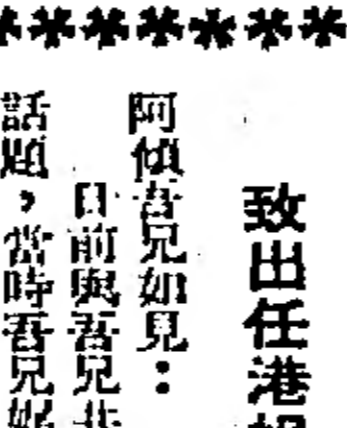 致出任港
阿傾吾兄如見：
日前與吾兄
話題，當時吾兄